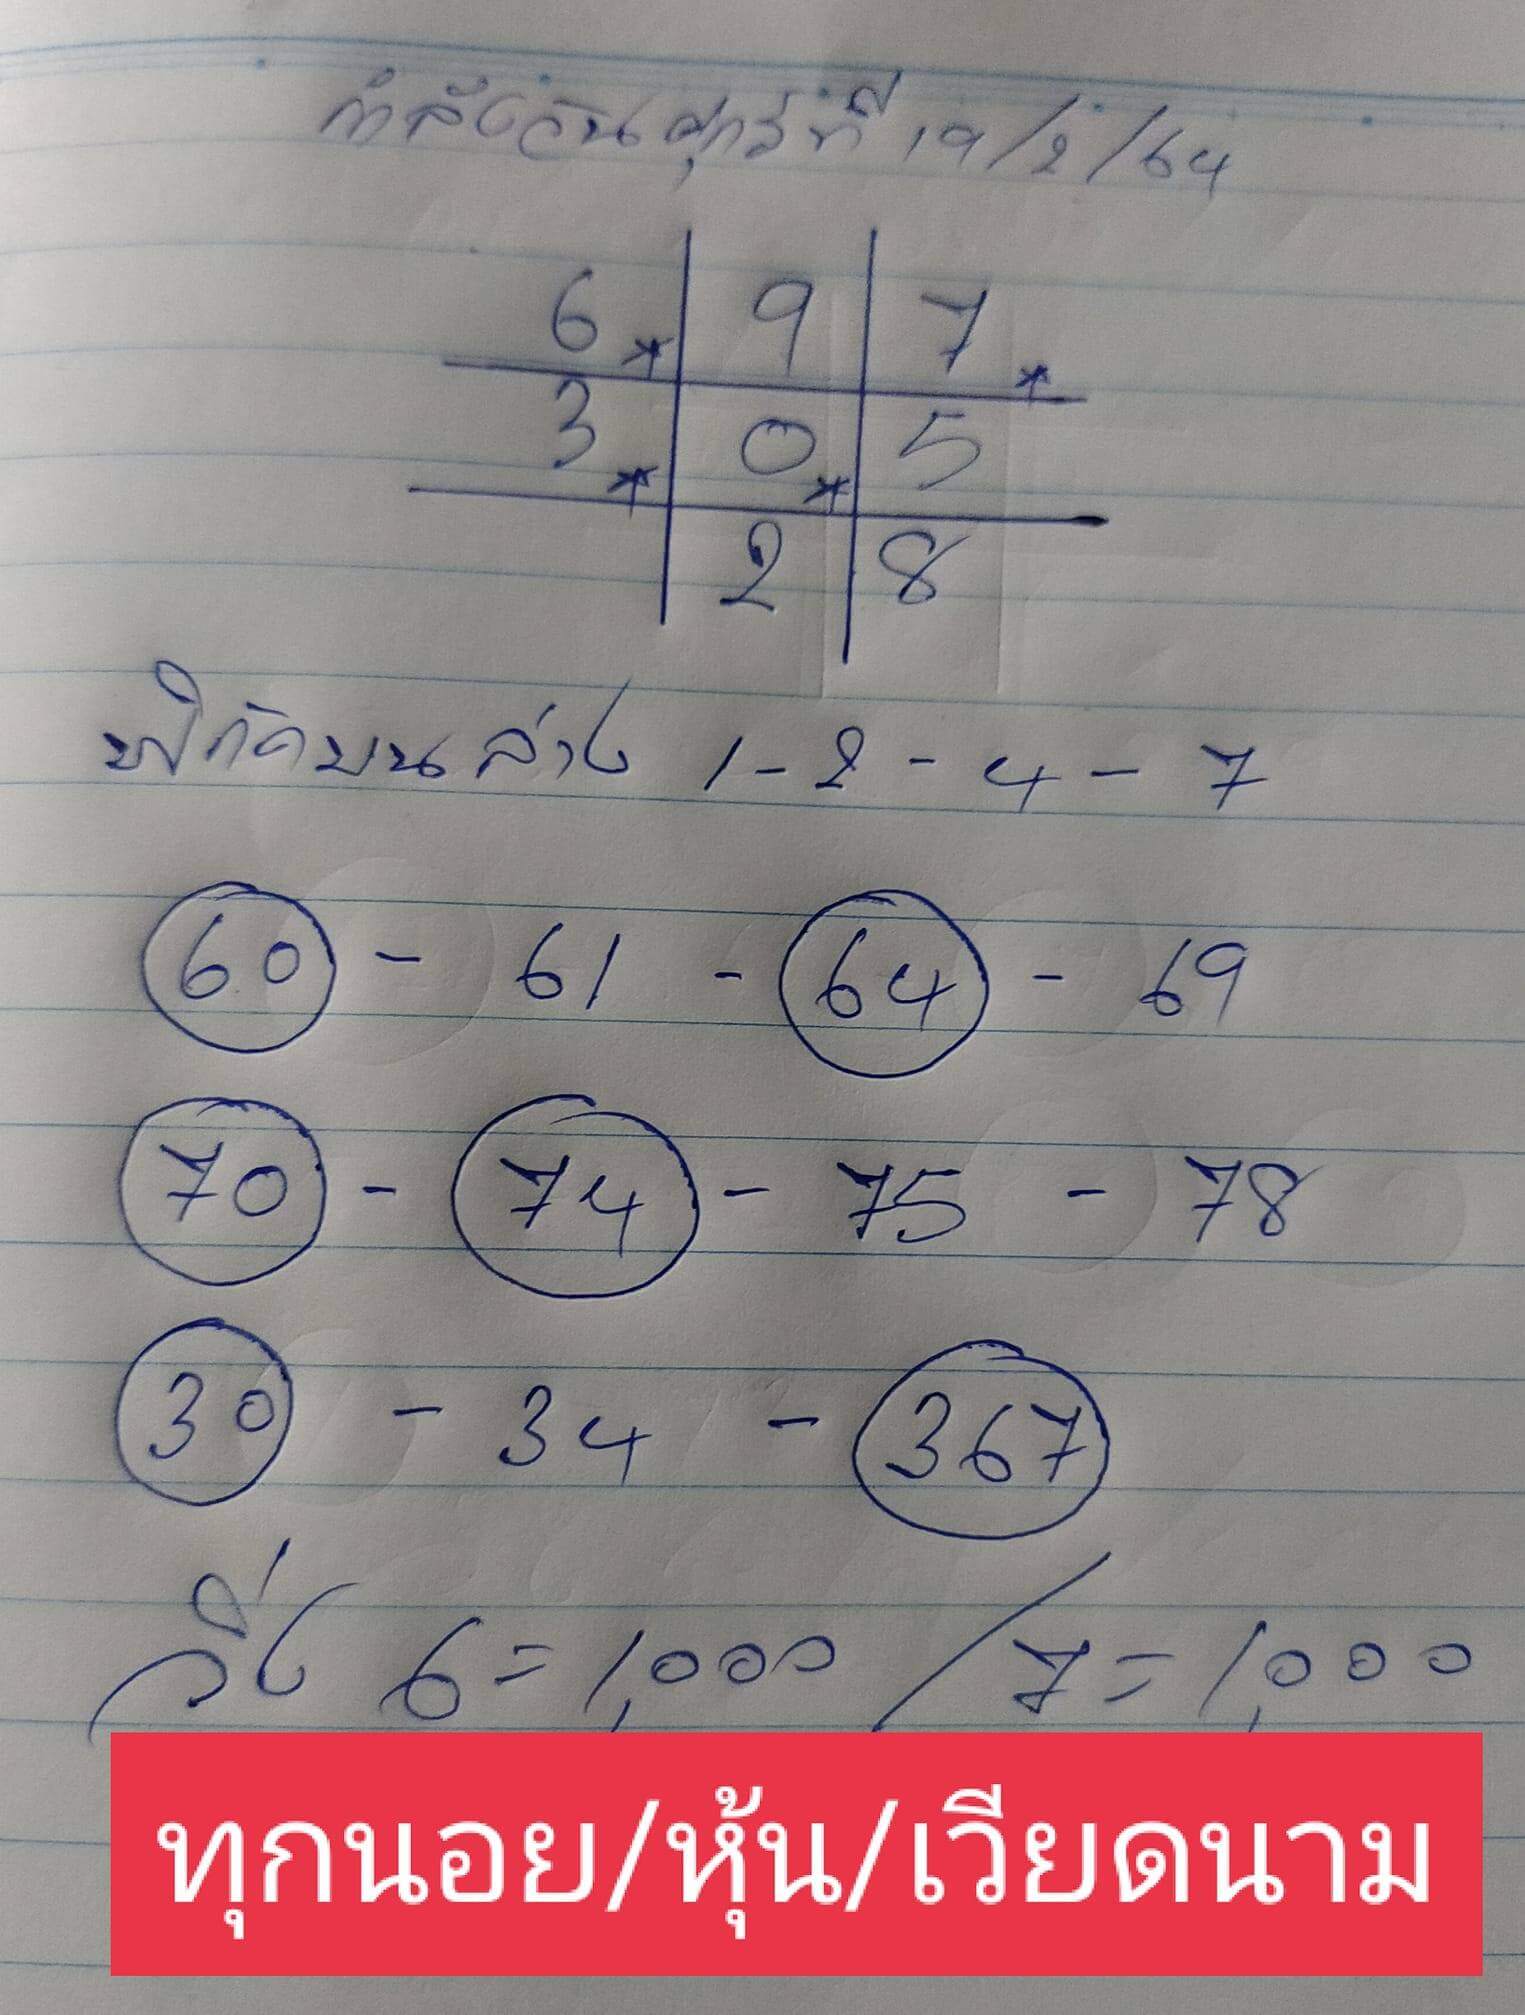 กำลังวันศุกร์ที่ 19/2/64
6* 9 7*
3* 0* 5
2 8
พิกัดบนล่าง 1-2-4-7
60 - 61 - 64 - 69
70 - 74 - 75 - 78
30 - 34 - 367
วิ่ง 6=1,000 / 7=1,000
ทุกนอย/หุ้น/เวียดนาม